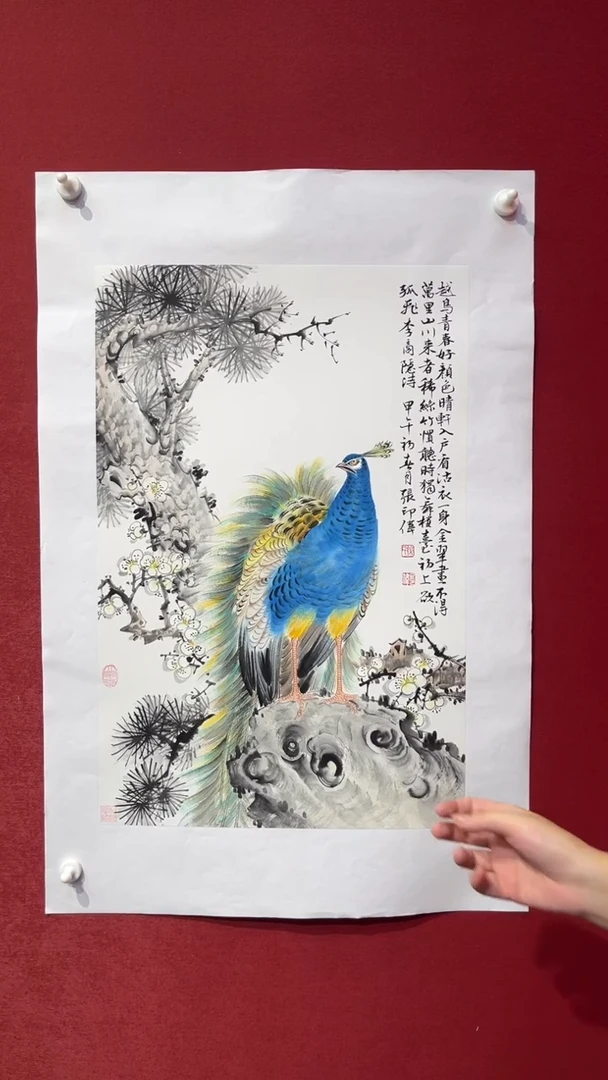 越鳥青春好顏色晴軒入戶看沽衣一身金翠畫不得
萬里山川來者稀絲竹慣聽時獨舞樓臺初上欲
孤飛李商隱詩 甲午初春月張印偉